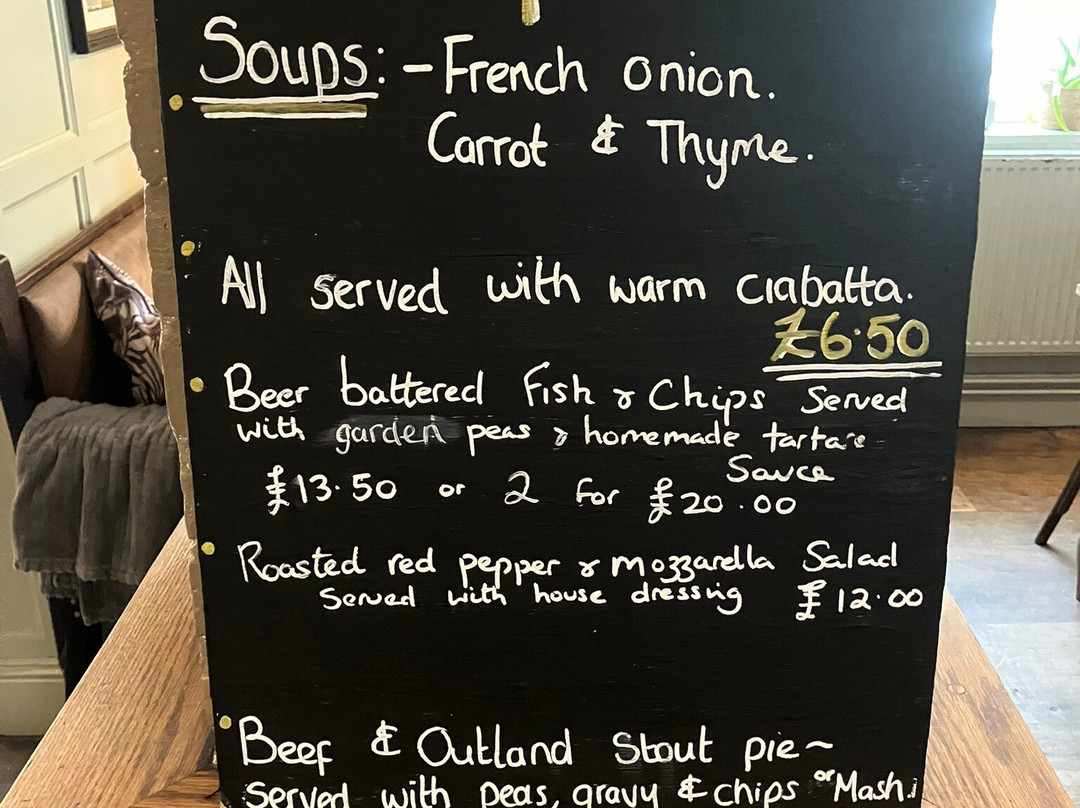 Soups: - French onion.
Carrot & Thyme.
All served with warm ciabatta.
£6.50
Beer battered Fish & Chips Served
with garden peas & homemade tartare
Sauce
£13.50 or 2 for £20.00
Roasted red pepper & mozzarella Salad
Served with house dressing £12.00
Beef & Outland Stout pie ~
Served with peas, gravy & chips or Mash.